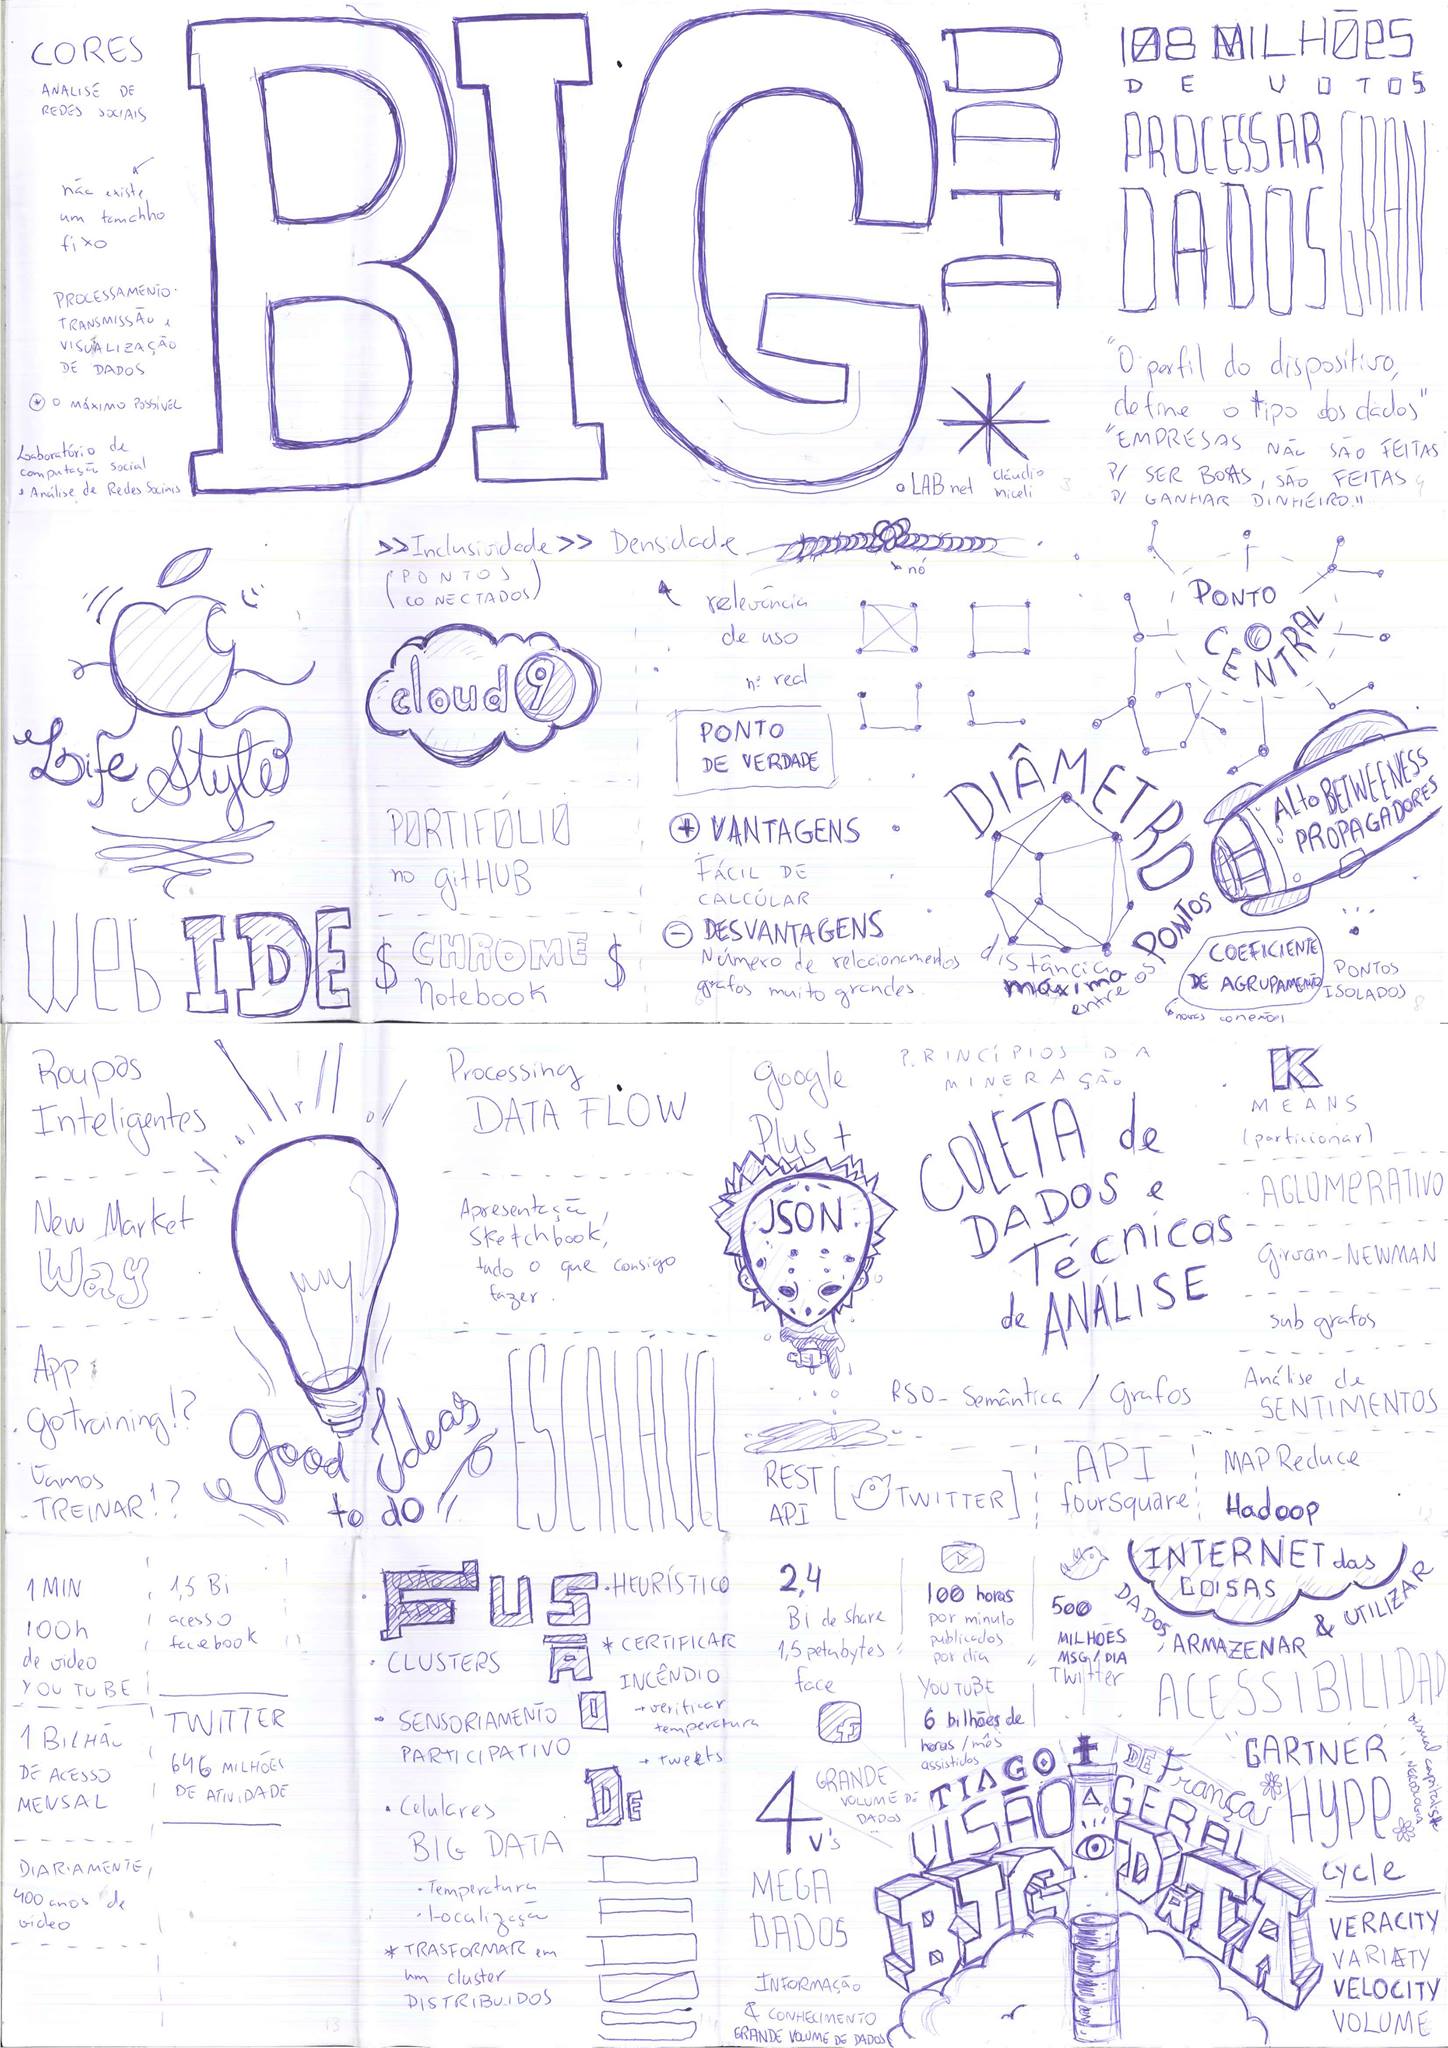 CORES
ANALISE DE
REDES SOCIAIS
não existe
um tamanho
fixo
PROCESSAMENTO
TRANSMISSÃO e
VISUALIZAÇÃO
DE DADOS
O MÁXIMO POSSÍVEL
Laboratório de
computação social
Análise de Redes Sociais
BIG
DATA
LABnet
Cláudio
Miceli
108 MILHÕES
DE VOTOS
PROCESSAR
DADOS
GRAN
"O perfil do dispositivo,
define o tipo dos dados"
"EMPRESAS NÃO SÃO FEITAS
P/ SER BOAS, SÃO FEITAS
P/ GANHAR DINHEIRO."
Life Style
Web IDE
>>Inclusividade>> Densidade
(PONTOS
CONECTADOS)
cloud9
PORTIFÓLIO
no gitHUB
$ CHROME $
Notebook
nó
relevância
de uso
nº real
PONTO
DE VERDADE
+ VANTAGENS
FÁCIL DE
CALCÚLAR
- DESVANTAGENS
Número de relacionamentos
grafos muito grandes.
PONTO
CENTRAL
DIÂMETRO
distância
máxima
entre os
PONTOS
Alto BETWEENESS
PROPAGADORES
COEFICIENTE
DE AGRUPAMENTO
novas conexões
PONTOS
ISOLADOS
8
Roupas
Inteligentes
New Market
Way
App
gotraining!?
Vamos
TREINAR!?
Good Ideas
to do
Processing
DATA FLOW
Apresentação,
Sketchbook,
tudo o que consigo
fazer.
ESCALÁVEL
Google
Plus +
JSON
PRINCÍPIOS DA
MINERAÇÃO
COLETA de
DADOS e
Técnicas
de ANÁLISE
K
MEANS
(particionar)
AGLOMERATIVO
Girvan-NEWMAN
sub grafos
Análise de
SENTIMENTOS
RSO- Semântica / Grafos
REST
API
[TWITTER]
API
fourSquare
MAP Reduce
Hadoop
1 MIN
100h
de video
YOUTUBE
1 BILHÃO
DE ACESSO
MENSAL
DIARIAMENTE,
400 anos de
video
1,5 Bi
acesso
facebook
TWITTER
646 MILHÕES
DE ATIVIDADE
13
FUSÃO DE
DADOS
HEURÍSTICO
CLUSTERS
* CERTIFICAR
INCÊNDIO
→ verificar
temperatura
→ tweets
SENSORIAMENTO
PARTICIPATIVO
Celulares
BIG DATA
Temperatura
Localização
* TRASFORMAR em
um cluster
DISTRIBUIDOS
2,4
Bi de share
1,5 petabytes
face
100 horas
por minuto
publicados
por dia
YOUTUBE
6 bilhões de
horas/mês
assistidos
500
MILHÕES
MSG/DIA
Twitter
INTERNET das
COISAS
DADOS,
ARMAZENAR
& UTILIZAR
ACESSIBILIDAD
4 V's
GRANDE
VOLUME DE
DADOS
MEGA
DADOS
INFORMAÇÃO
& CONHECIMENTO
GRANDE VOLUME DE DADOS
TIAGO
DE França
VISÃO GERAL
BIG DATA
GARTNER
Hype
cycle
VERACITY
VARIETY
VELOCITY
VOLUME